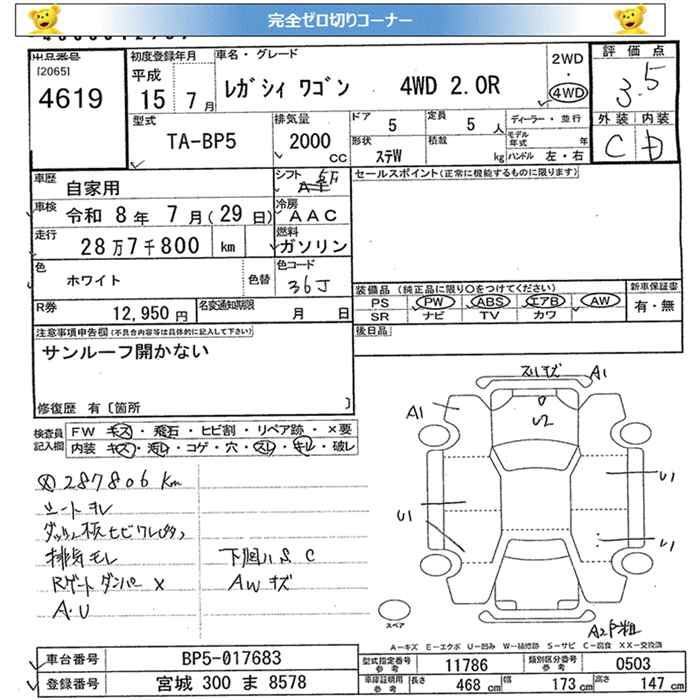 完全ゼロ切りコーナー
出品番号
[2065]
4619
初度登録年月
平成
15 年 7 月
車名・グレード
レガシィ ワゴン 4WD 2.0R
2WD
・
4WD
評価点
3.5
外装 内装
C
型式
TA-BP5
排気量
2000
CC
ドア
5
定員
5 人
形状
ステW
積載
kg
ディーラー・並行
モデル年式 年
ハンドル 左・右
車歴
自家用
シフト
冷房
AAC
燃料
ガソリン
車検
令和 8 年 7 月 (29 日)
走行
28 万 7 千 800 km
色
ホワイト
色替
色コード
36J
R券
12,950 円
名変通知期限
月 日
セールスポイント(正常に機能するものに限ります)
装備品(純正品に限り○をつけてください)
PS PW ABS エアB AW
SR ナビ TV カワ
新車保証書
有・無
後日品
注意事項申告欄(不具合内容等は具体的に記入して下さい)
サンルーフ開かない
修復歴 有〔箇所 〕
検査員記入欄
FW キズ・飛石・ヒビ割・リペア跡・×要
内装 キズ・汚レ・コゲ・穴・スレ・キレ・破レ
287806 km
シートヨレ
排気モレ
Rゲートダンパー ×
A・U
下回り S C
AW キズ
A1
A1
U2
U1
U1
U1
スペア
A-キズ E-エクボ U-凹み W-補修跡 S-サビ C-腐食 XX-交換済
車台番号
BP5-017683
登録番号
宮城 300 ま 8578
型式指定番号
参考
11786
類別区分番号
参考
0503
車庫証明用
参考
長さ
468 cm
幅
173 cm
高さ
147 cm